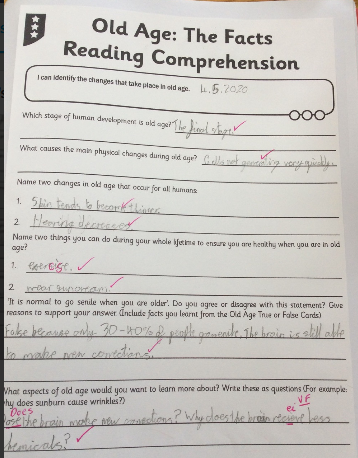 Old Age: The Facts
Reading Comprehension
I can identify the changes that take place in old age. 4.5.2020
Which stage of human development is old age? The final stage
What causes the main physical changes during old age? Cells not generating very quickly.
Name two changes in old age that occur for all humans:
1. Skin tends to become thinner
2. Hearing decreases
Name two things you can do during your whole lifetime to ensure you are healthy when you are in old
age?
1. exercise.
2. wear suncream.
'It is normal to go senile when you are older'. Do you agree or disagree with this statement? Give
reasons to support your answer (Include facts you learnt from the Old Age True or False Cards)
False because only 30-40% of people The brain is still able
to make new conections.
What aspects of old age would you want to learn more about? Write these as questions (For example:
why does sunburn cause wrinkles?) VF
Does ei
the brain make new conections? Why does the brain recieve less
chemicals?